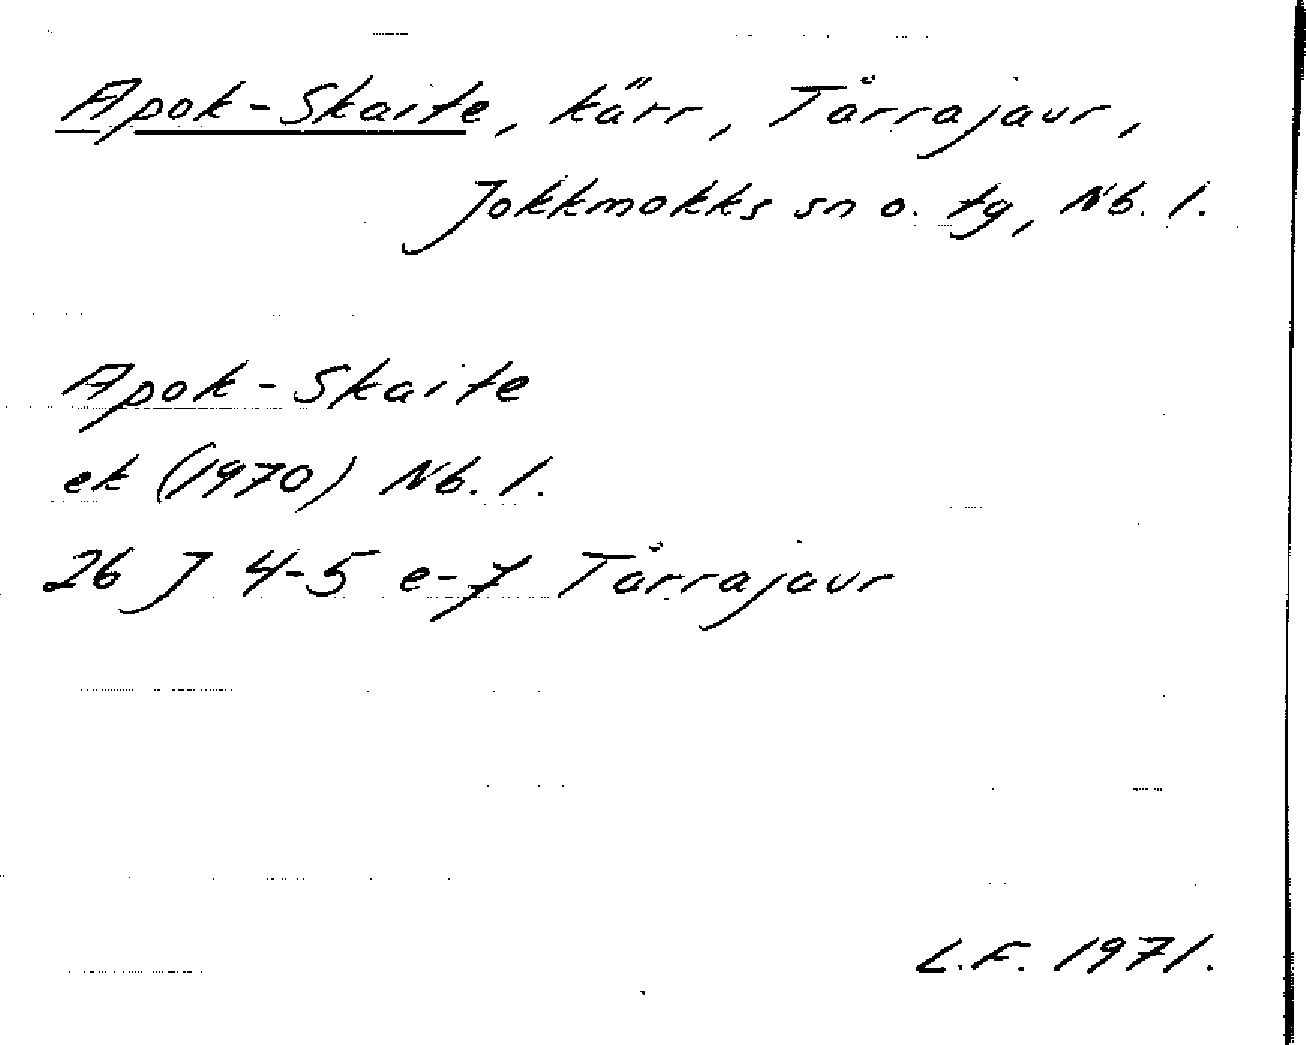 Apok-Skaite, kärr, Tårrajaur,
Jokkmokks sn o. tg, Nb. l.
Apok-Skaite
ek (1970) Nb. l.
26 J 4-5 e-f Tårrajaur
L.F. 1971.